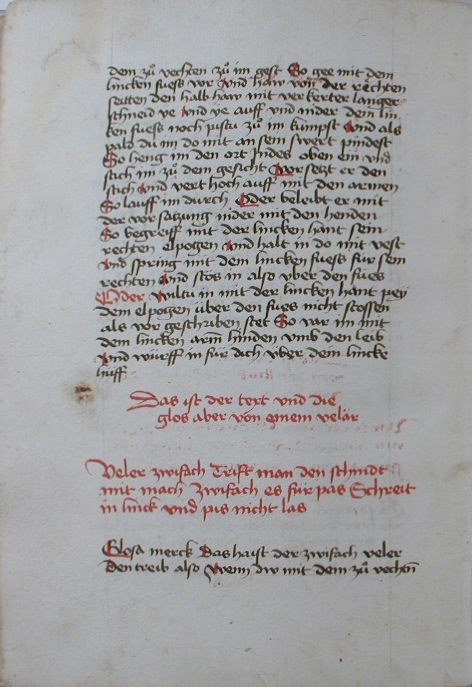 dem zu vechten zu im gest So gee mit dem
lincken fuess vor vnd haw von der rechten
seitten den halb haw mit verkerter langer
schneid ye vnd ye auff vnd nider dem lin
ken fuess noch pistu zu im kumpst vnd als
pald du im do mit an sein swert pindest
So heng im den ort Indes oben ein vnd
stich im zu dem gesicht vor setzt er den
stich vnd vert hoch auff mit den armen
So lauff im durch Oder beleibt er mit
der vor satzung nider mit den henden
So begreiff mit der lincken hant sein
rechten elpogen vnd halt in do mit vest
vnd spring mit dem lincken fuess für sein
rechten vnd stös in also vber den fues
Oder wiltu in mit der lincken hant pey
dem elpogen über den fues nicht stossen
als vor geschriben stet So var im mit
dem lincken arm hinden vmb den leib
vnd würff in für dich vber dem lincke
huff
Das ist der text vnd die
glos aber von eynem velär
Veler zwifach Trift man den schnidt
mit mach Zwifach es für pas Schreit
in linck vnd pis nicht las
Glosa merck Das haist der zwifach veler
Den treib also Wenn dw mit dem zu vechen